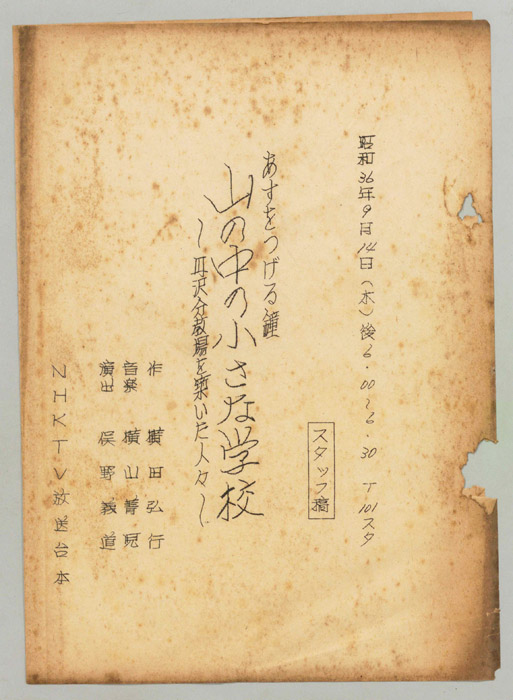 昭和36年9月14日(木)後6.00〜6.30 T101スタ
スタッフ稿
あすをつげる鐘
山の中の小さな学校
〜丹沢分教場を築いた人々〜
作 横田弘行
音楽 横山菁児
演出 俣野義道
NHKTV放送台本